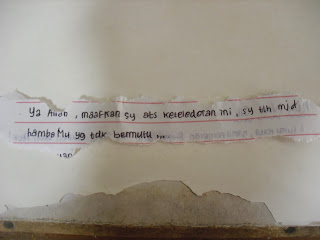 Ya Allah, maafkan sy ats keteledoran ini, sy tlh mjd
hambaMu yg tdk bermutu...